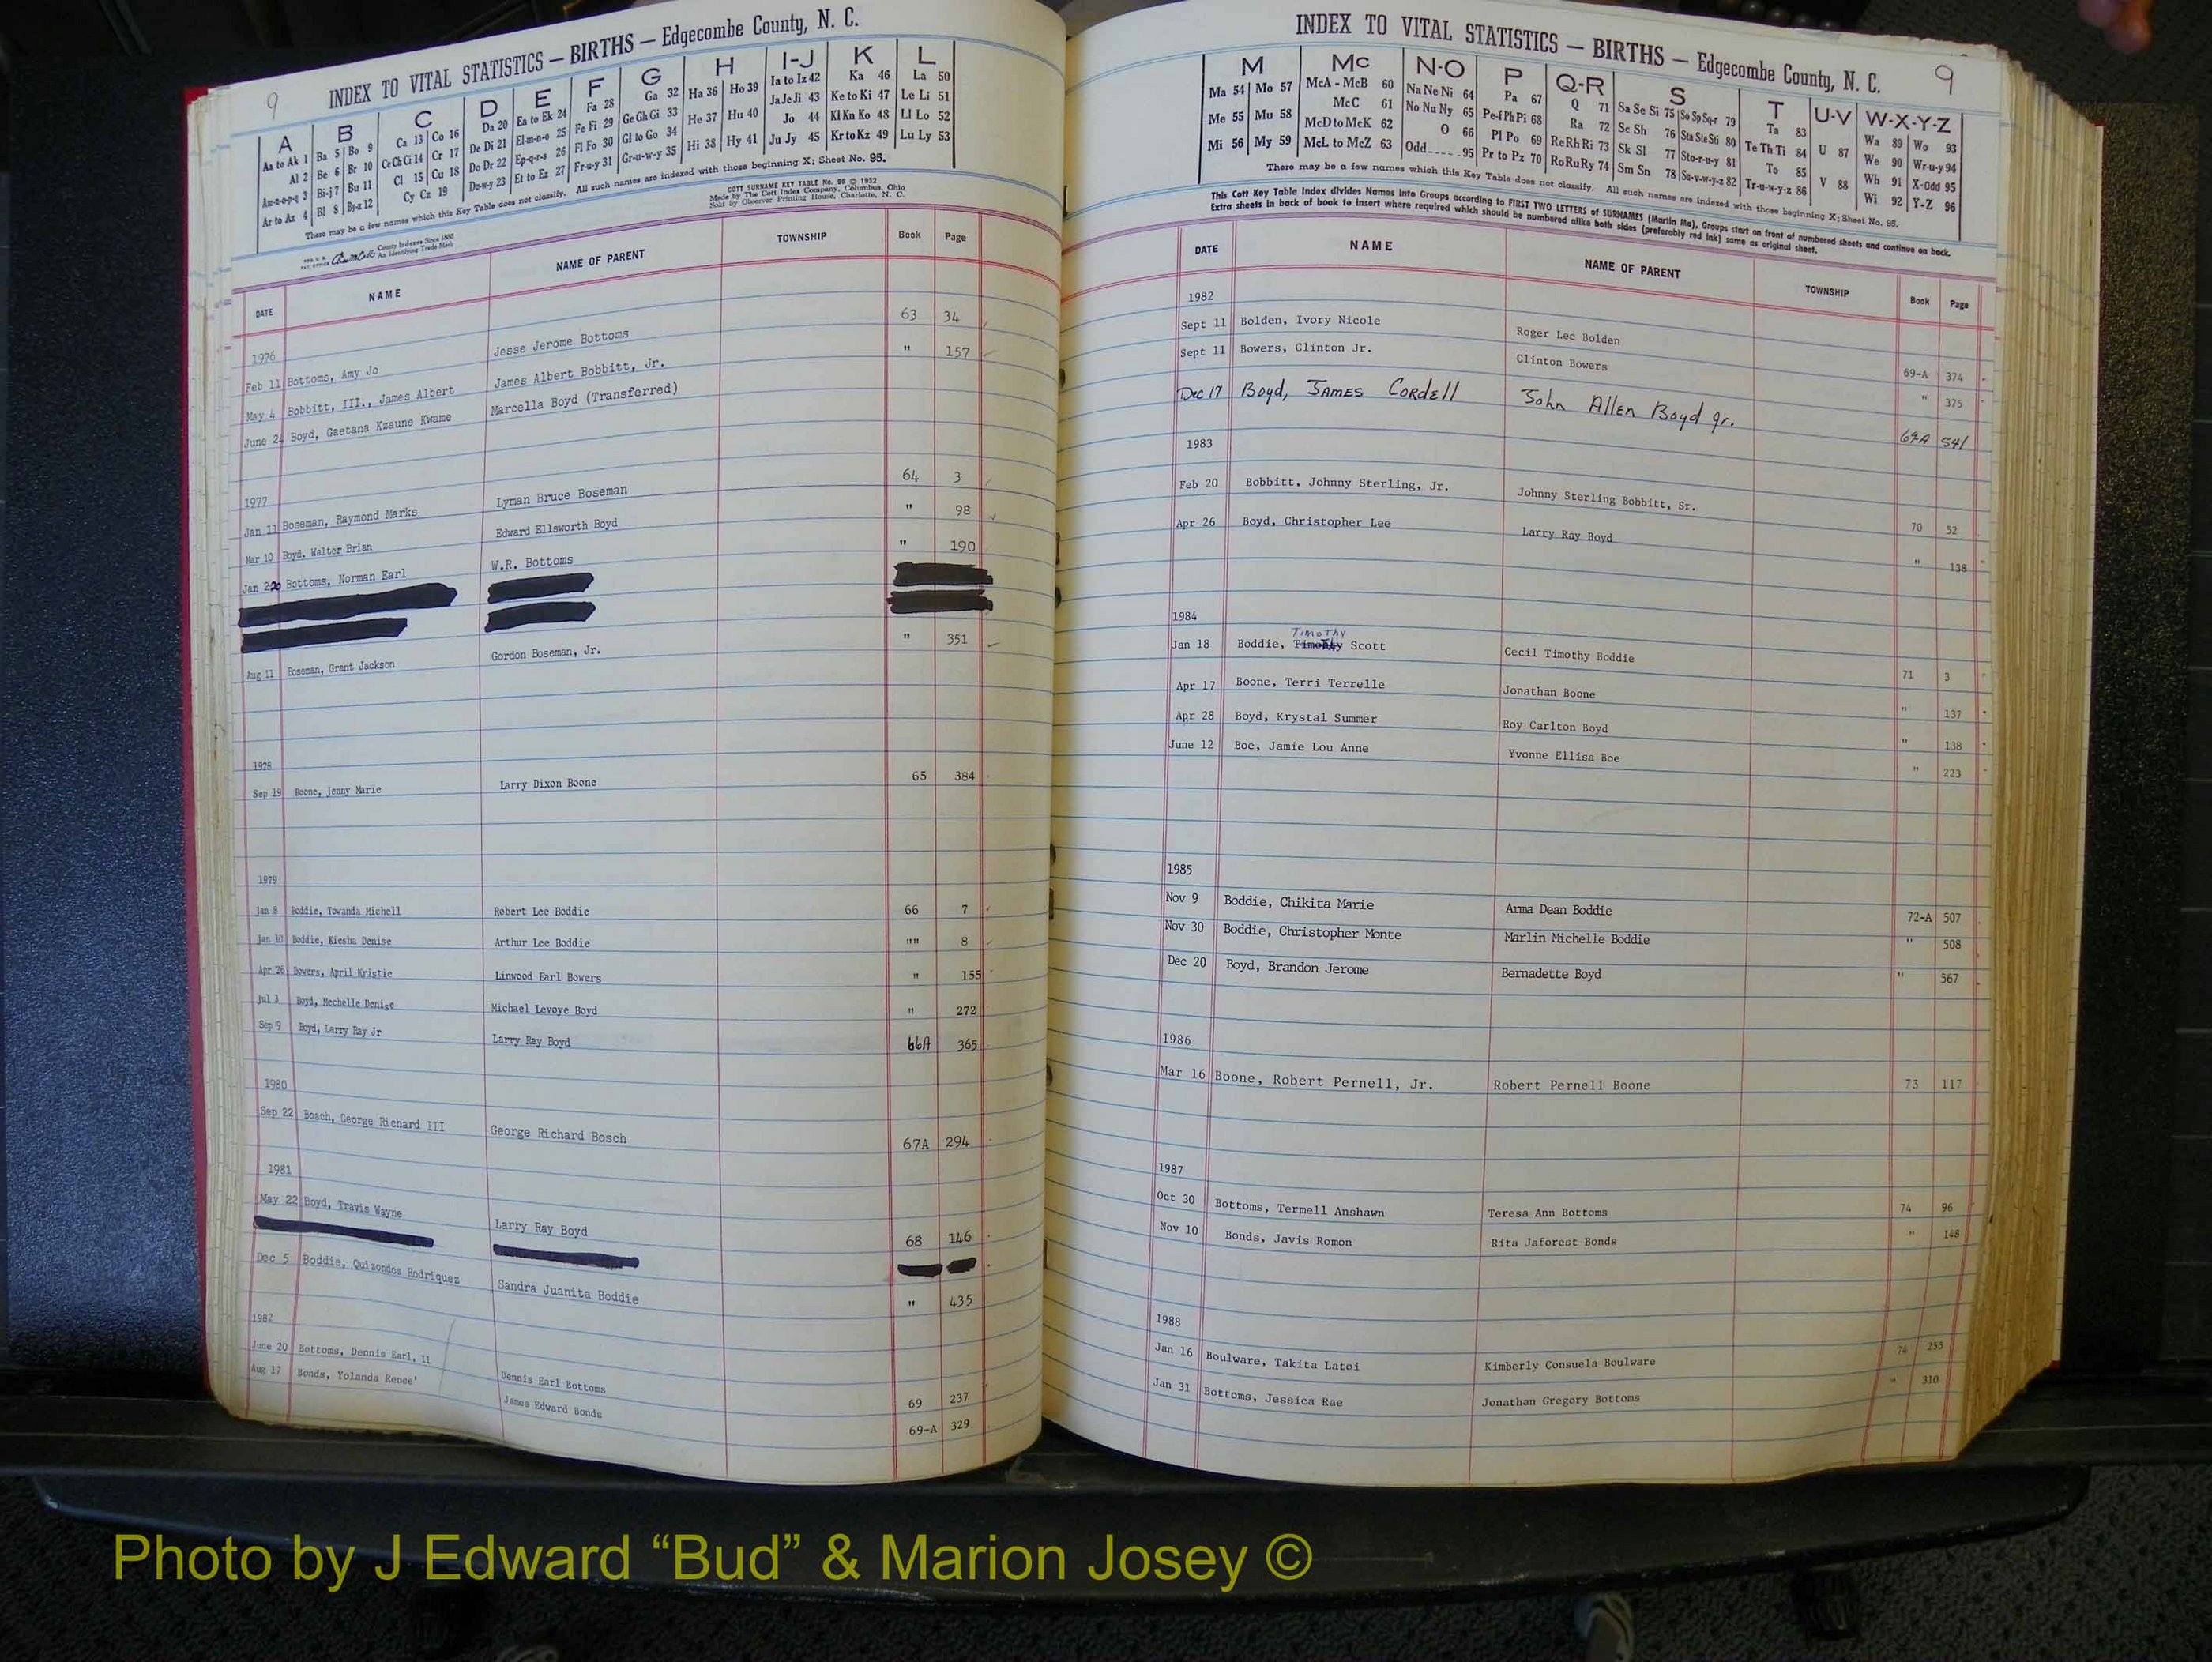 9 INDEX TO VITAL STATISTICS — BIRTHS — Edgecombe County, N. C.
A B C D E F G H I-J K L
Aa to Ak 1 Ba 5 Bo 9 Ca 13 Co 16 Da 20 Ea to Ek 24 Fa 28 Ga 32 Ha 36 Ho 39 Ia to Iz 42 Ka 46 La 50
Al 2 Be 6 Br 10 Ce Ch Ci 14 Cr 17 De Di 21 El-m-n-o 25 Fe Fi 29 Ge Gh Gi 33 He 37 Hu 40 Ja Je Ji 43 Ke to Ki 47 Le Li 51
Am-n-o-p-q 3 Bi-j 7 Bu 11 Cl 15 Cu 18 Do Dr 22 Ep-q-r-s 26 Fl Fo 30 Gl to Go 34 Hi 38 Hy 41 Jo 44 Kl Kn Ko 48 Ll Lo 52
Ar to Az 4 Bl 8 By-z 12 Cy Cz 19 Du-w-y 23 Et to Ez 27 Fr-u-y 31 Gr-u-w-y 35 Ju Jy 45 Kr to Kz 49 Lu Ly 53
There may be a few names which this Key Table does not classify. All such names are indexed with those beginning X; Sheet No. 95.
COTT SURNAME KEY TABLE No. 96 © 1932
Made by The Cott Index Company, Columbus, Ohio
Sold by Observer Printing House, Charlotte, N. C.
County Indexes Since 1888
An Identifying Trade Mark
DATE NAME NAME OF PARENT TOWNSHIP Book Page
1976
Feb 11 Bottoms, Amy Jo Jesse Jerome Bottoms 63 34
May 4 Bobbitt, III., James Albert James Albert Bobbitt, Jr. " 157
June 24 Boyd, Gaetana Kzaune Kwame Marcella Boyd (Transferred)
1977
Jan 11 Boseman, Raymond Marks Lyman Bruce Boseman 64 3
Mar 10 Boyd, Walter Brian Edward Ellsworth Boyd " 98
Jan 20 Bottoms, Norman Earl W.R. Bottoms " 190
Aug 11 Boseman, Grant Jackson Gordon Boseman, Jr. " 351
1978
Sep 19 Boone, Jenny Marie Larry Dixon Boone 65 384
1979
Jan 8 Boddie, Towanda Michell Robert Lee Boddie 66 7
Jan 10 Boddie, Kiesha Denise Arthur Lee Boddie "" 8
Apr 26 Bowers, April Kristie Linwood Earl Bowers " 155
Jul 3 Boyd, Mechelle Denise Michael Levoye Boyd " 272
Sep 9 Boyd, Larry Ray Jr Larry Ray Boyd 66A 365
1980
Sep 22 Bosch, George Richard III George Richard Bosch 67A 294
1981
May 22 Boyd, Travis Wayne Larry Ray Boyd 68 146
Dec 5 Boddie, Quizondos Rodriquez Sandra Juanita Boddie " 435
1982
June 20 Bottoms, Dennis Earl, 11 Dennis Earl Bottoms 69 237
Aug 17 Bonds, Yolanda Renee' James Edward Bonds 69-A 329
INDEX TO VITAL STATISTICS — BIRTHS — Edgecombe County, N. C. 9
M Mc N-O P Q-R S T U-V W-X-Y-Z
Ma 54 Mo 57 McA - McB 60 Na Ne Ni 64 Pa 67 Q 71 Sa Se Si 75 So Sp Sq-r 79 Ta 83 U 87 Wa 89 Wo 93
Me 55 Mu 58 McC 61 No Nu Ny 65 Pe-f Ph Pi 68 Ra 72 Sc Sh 76 Sta Ste Sti 80 Te Th Ti 84 V 88 We 90 Wr-u-y 94
Mi 56 My 59 McD to McK 62 O 66 Pl Po 69 Re Rh Ri 73 Sk Sl 77 Sto-r-u-y 81 To 85 Wh 91 X-Odd 95
McL to McZ 63 Odd 95 Pr to Pz 70 Ro Ru Ry 74 Sm Sn 78 Su-v-w-y-z 82 Tr-u-w-y-z 86 Wi 92 Y-Z 96
There may be a few names which this Key Table does not classify. All such names are indexed with those beginning X; Sheet No. 95.
This Cott Key Table Index divides Names into Groups according to FIRST TWO LETTERS of SURNAMES (Martin Ma), Groups start on front of numbered sheets and continue on back.
Extra sheets in back of book to insert where required which should be numbered alike both sides (preferably red ink) same as original sheet.
DATE NAME NAME OF PARENT TOWNSHIP Book Page
1982
Sept 11 Bolden, Ivory Nicole Roger Lee Bolden 69-A 374
Sept 11 Bowers, Clinton Jr. Clinton Bowers " 375
Dec 17 Boyd, JAMES CORdEll John Allen Boyd Jr. 69A 541
1983
Feb 20 Bobbitt, Johnny Sterling, Jr. Johnny Sterling Bobbitt, Sr. 70 52
Apr 26 Boyd, Christopher Lee Larry Ray Boyd " 138
1984
Timothy
Jan 18 Boddie, Timothy Scott Cecil Timothy Boddie 71 3
Apr 17 Boone, Terri Terrelle Jonathan Boone " 137
Apr 28 Boyd, Krystal Summer Roy Carlton Boyd " 138
June 12 Boe, Jamie Lou Anne Yvonne Ellisa Boe " 223
1985
Nov 9 Boddie, Chikita Marie Arma Dean Boddie 72-A 507
Nov 30 Boddie, Christopher Monte Marlin Michelle Boddie " 508
Dec 20 Boyd, Brandon Jerome Bernadette Boyd " 567
1986
Mar 16 Boone, Robert Pernell, Jr. Robert Pernell Boone 73 117
1987
Oct 30 Bottoms, Termell Anshawn Teresa Ann Bottoms 74 96
Nov 10 Bonds, Javis Romon Rita Jaforest Bonds " 148
1988
Jan 16 Boulware, Takita Latoi Kimberly Consuela Boulware 74 255
Jan 31 Bottoms, Jessica Rae Jonathan Gregory Bottoms " 310
Photo by J Edward “Bud” & Marion Josey ©